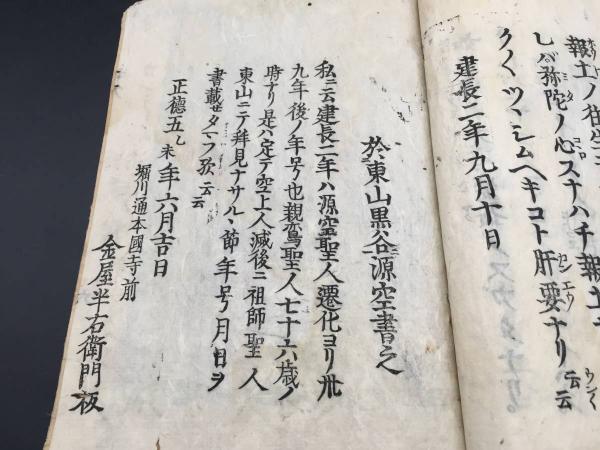 報土ノ往生
シバ弥陀ノ心スナハチ報土
ク〱ツヽシムヘキコト肝要ナリ云云
建長二年九月十日
於東山黒谷源空書之
私ニ云建長二年ハ源空聖人遷化ヨリ卅
九年後ノ年号也親鸞聖人七十六歳ノ
時ナリ是ハ定テ空上人滅後ニ祖師聖人
東山ニテ拜見ナサルヽ節年号月日ヲ
書載セタマフ歟云云
正徳五乙未年六月吉日
堀川通本國寺前
金屋半右衛門板